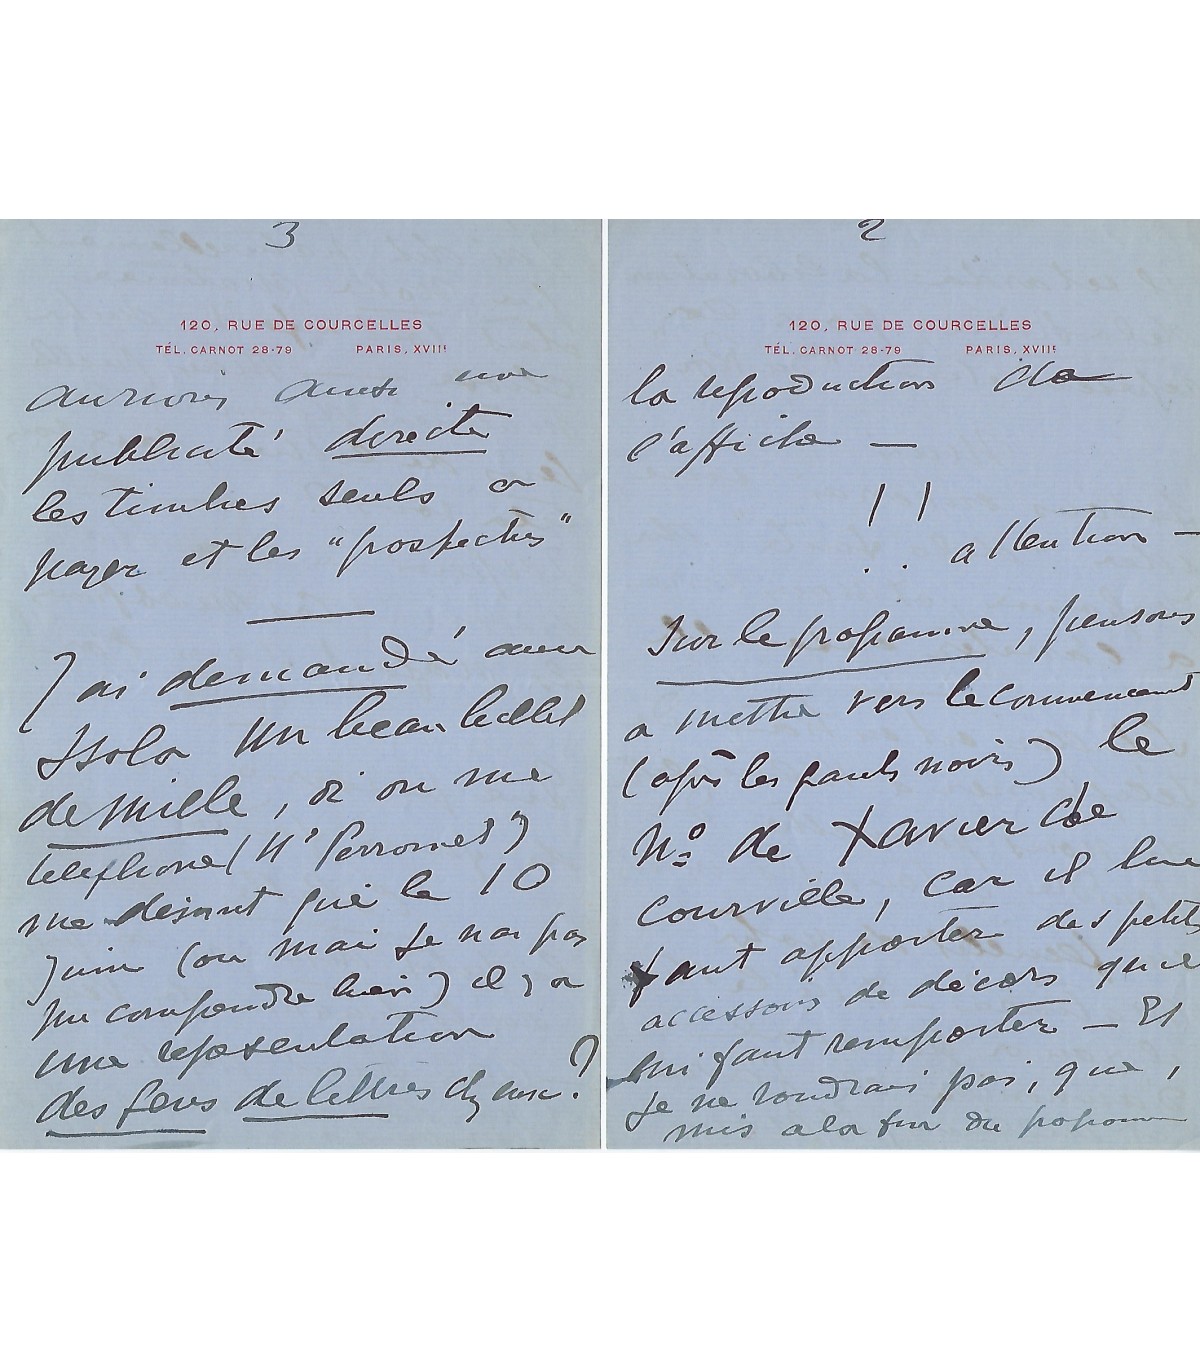 3
120, RUE DE COURCELLES
TÉL. CARNOT 28-79 PARIS, XVIIe
aurions aussi une
publicité directe
les timbres seuls a
payer et les "prospectus"
J'ai demandé aux
Isola un beau billet
de mille, si on me
téléphone (Mr Perronet)
me disant que le 10
juin (ou mai je n'ai pas
pu comprendre hier) il y a
une représentation
des gens de lettres chez eux?
2
120, RUE DE COURCELLES
TÉL. CARNOT 28-79 PARIS, XVIIe
la reproduction de
l'affiche —
!! attention —
Sur le programme, pensons
a mettre vers le commencement
(après les gants noirs) le
No de Xavier de
Courville, car il lui
faut apporter des petits
accessoires de décors que
lui faut remporter — Et
je ne voudrais pas, que,
mis a la fin du programme